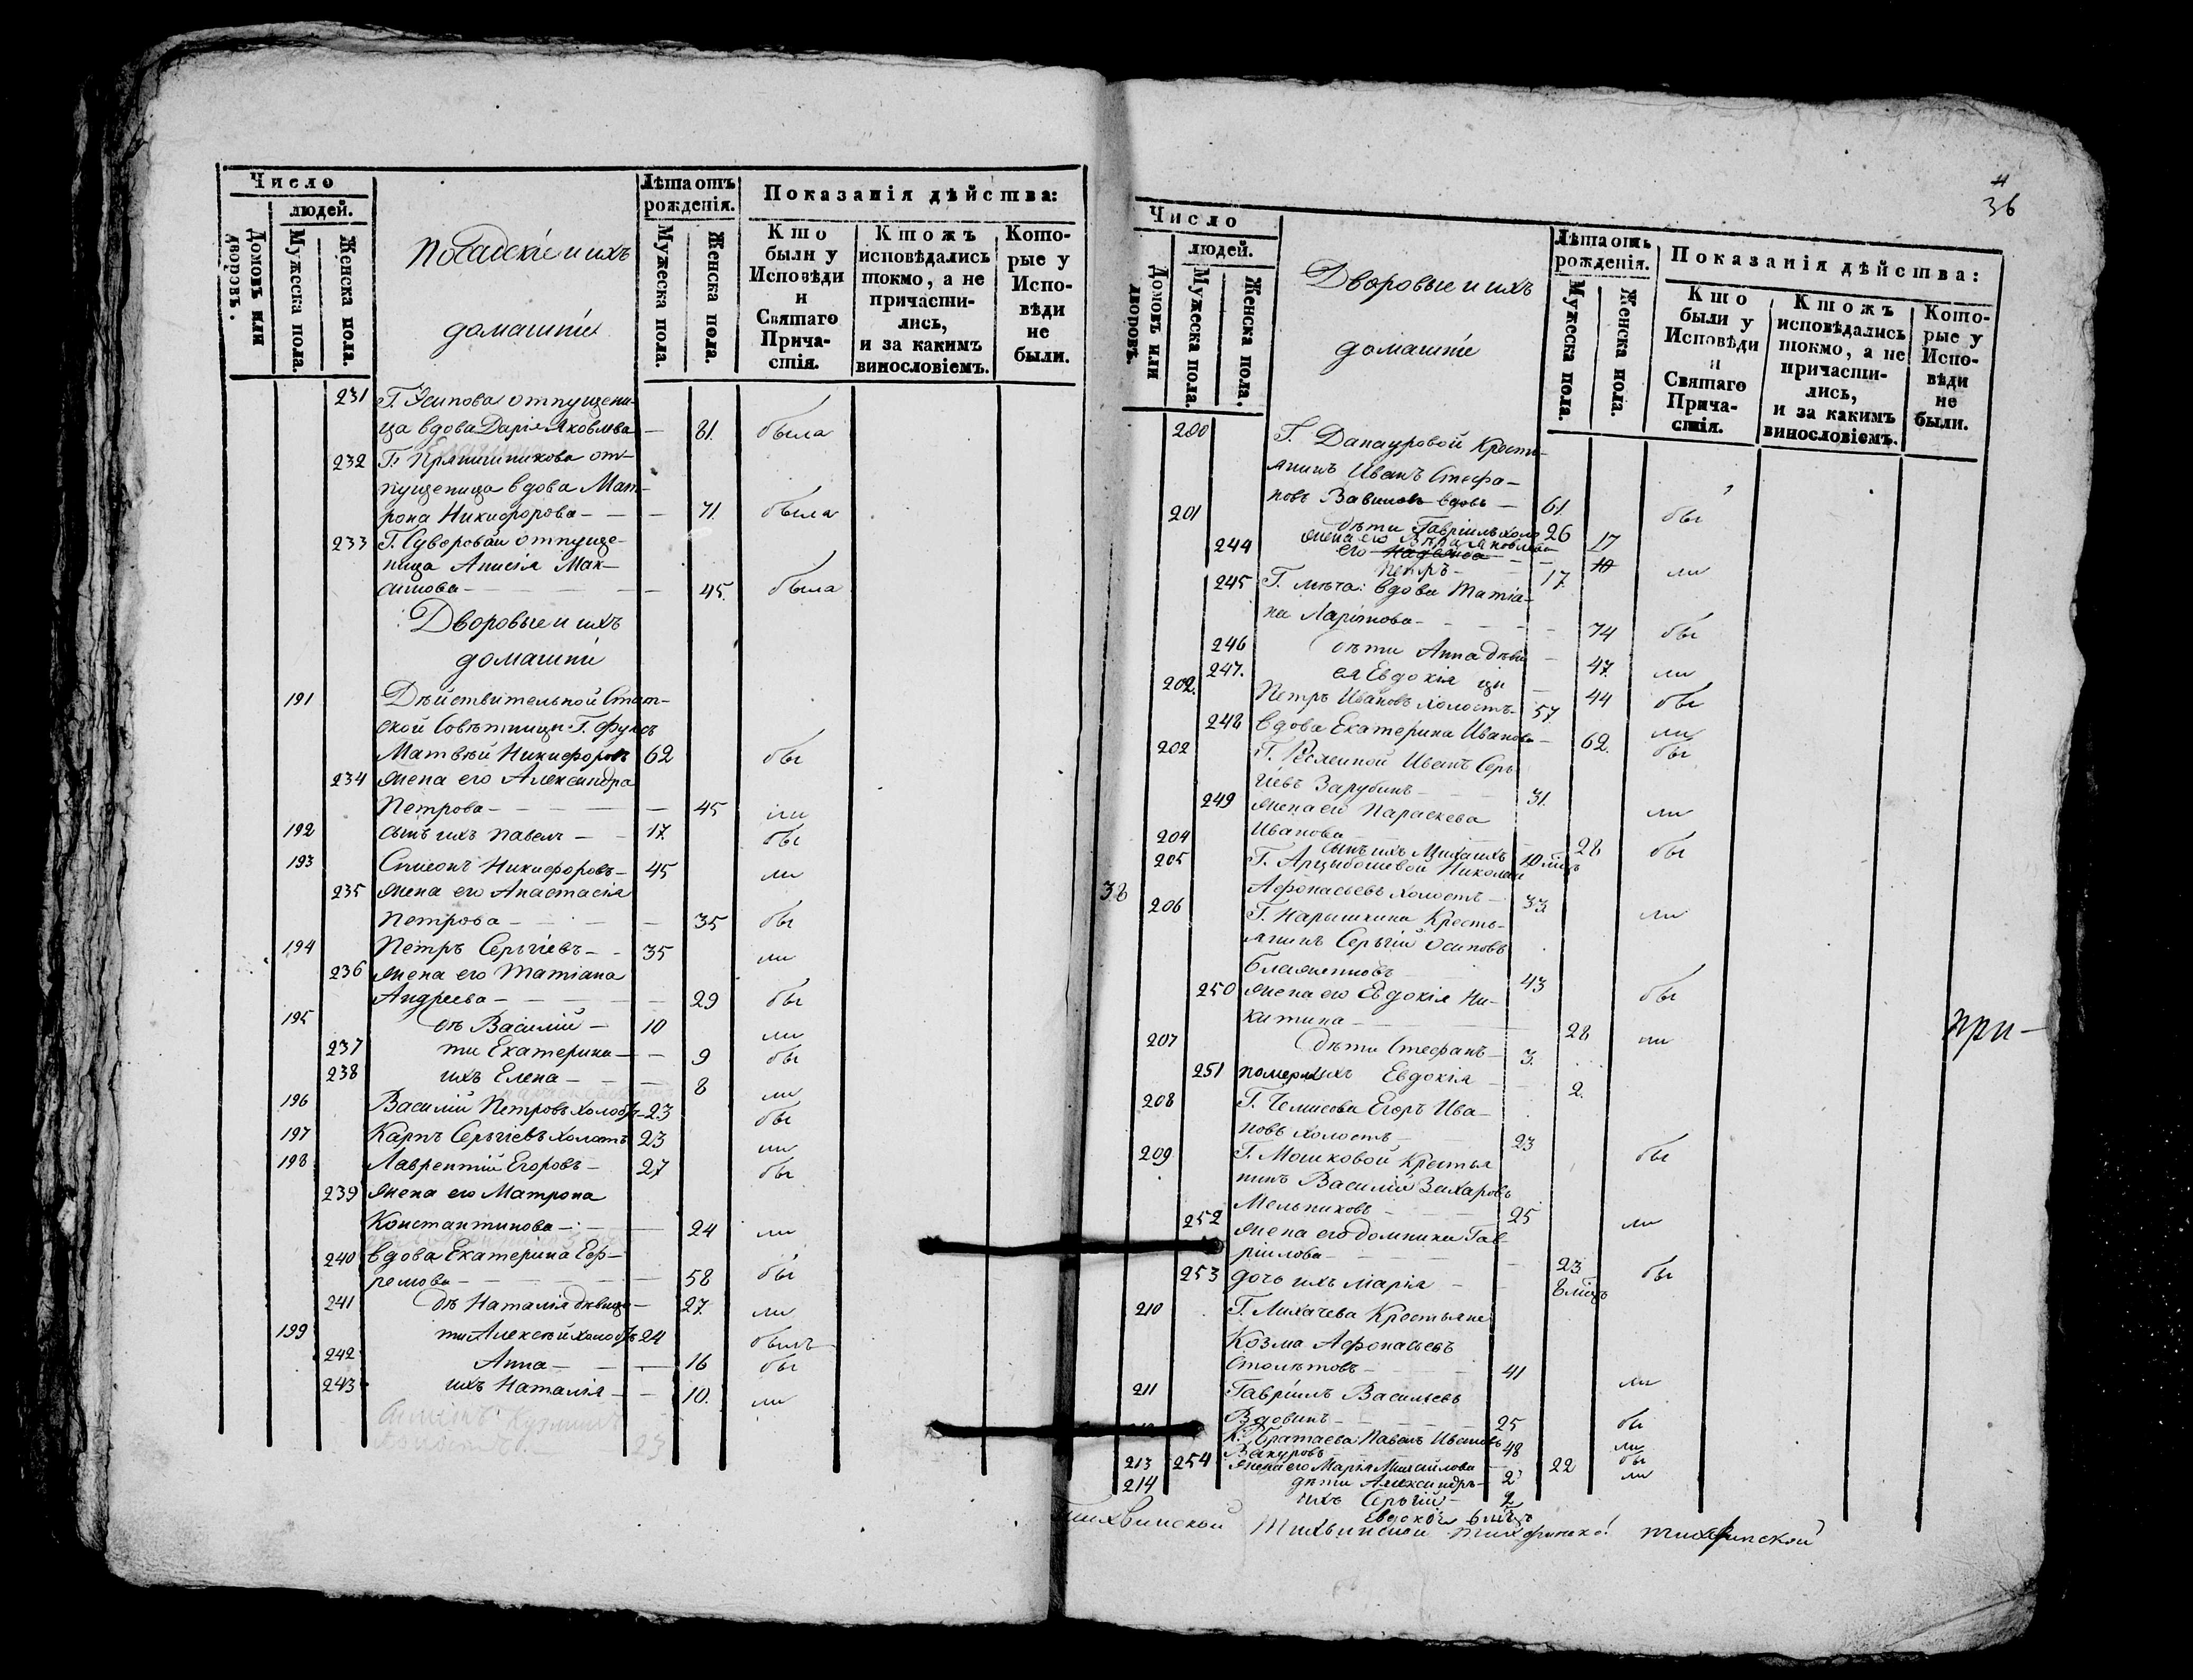 Число
людей.
Домовъ или дворовъ.
Мужеска пола.
Женска пола.
Посадскіе и ихъ
домашніе
Лѣта отъ
рожденія.
Мужеска пола.
Женска пола.
Показанія дѣйства:
Кто
были у
Исповѣди
и
Святаго
Прича-
стія.
Ктожъ
исповѣдались
токмо, а не
причасти-
лись,
и за какимъ
винословіемъ.
Кото-
рые у
Испо-
вѣди
не
были.
231 Г. Осипова отпущени-
ца вдова Дарія Яковлева — 81. была
232 Г. Прянишникова от-
пущеница вдова Мат-
рона Никифорова — 71. была
233 Г. Суворовой отпуще-
ница Анисія Мак-
симова — 45. была
Дворовые и ихъ
домашніи
191 Дѣйствительной Стат-
ской Совѣтницы Г. Фуксъ
Матвѣй Никифоровъ 62 бы
234 жена его Александра
Петрова — 45 ли
192 сынъ ихъ Павелъ — 17. бы
193 Симеонъ Никифоровъ — 45 ли
235 жена его Анастасія
Петрова — 35 бы
194 Петръ Сергіевъ — 35 ли
236 жена его Татіана
Андреева — 29 бы
195 дѣ Василій — 10 ли
237 ти Екатерина — 9 бы
238 ихъ Елена — 8 ли
196 Василій Петровъ холостъ 23 бы
197 Карпъ Сергіевъ холостъ 23 ли
198 Лаврентій Егоровъ — 27 бы
239 жена его Матрона
Константинова — 24 ли
240 вдова Екатерина Еф-
ремова — 58 бы
241 дѣ Наталія дѣвица — 27 ли
199 ти Алексѣй холостъ 24 былъ
242 Анна — 16 бы
243 ихъ Наталія — 10. ли
23
36
Число
людей.
Домовъ или дворовъ.
Мужеска пола.
Женска пола.
Дворовые и ихъ
домашніе
Лѣта отъ
рожденія.
Мужеска пола.
Женска пола.
Показанія дѣйства:
Кто
были у
Исповѣди
и
Святаго
Прича-
стія.
Ктожъ
исповѣдались
токмо, а не
причасти-
лись,
и за какимъ
винословіемъ.
Кото-
рые у
Испо-
вѣди
не
были.
200 Г. Данауровой Кресть-
янинъ Иванъ Стефа-
новъ Вавиловъ вдовъ — 61. бы
201 дѣти Гавріилъ холо 26
244 жена его Вѣра Яковлева 17
его Надежда 10 ли
Петръ — 17.
245 Г. вдова Татіа-
на Ларіонова — 74 бы
246 дѣти Анна дѣви — 47. ли
247. ея Евдокія цы — 44 бы
202. Петръ Ивановъ холостъ — 57 ли
248 вдова Екатерина Иванова — 62. бы
202 Г. Иванъ Сер-
гіевъ Зарубинъ — 31. ли
249 жена его Параскева
Иванова — 28 бы
204 сынъ ихъ Михаилъ 10 мѣсъ
205 Г. Арцыбошевой Николай
Афонасьевъ холостъ — 33. ли
38
206 Г. Нарышкина Кресть-
янинъ Сергій Осиповъ
Блаженновъ 43 бы
250 жена его Евдокія Ни-
китина — 28 ли
207 дѣти Стефанъ — 3.
251 померли ихъ Евдокія — 2.
208 Г. Егоръ Ива-
новъ холостъ — 23 бы
209 Г. Мошковой Крестья
нинъ Василій Захаровъ
Мельниковъ — 25 ли
252 жена его Домника Гав-
ріилова — 23 бы
253 дочь ихъ Марія — 8 мѣсъ
210 Г. Лихачева Крестьяне
Козма Афонасьевъ
Столѣтовъ — 41 ли
211 Гавріилъ Васильевъ
Вдовинъ — 25 бы
К. Братаева Павелъ Ивановъ 48 ли
254 жена его Марія Михаилова 22 бы
213 дѣти Александръ — 2 ли
214 ихъ Сергій — 2
Евдокія 6 мѣсъ
при-
Тихвинской Тихвинской тихвинской